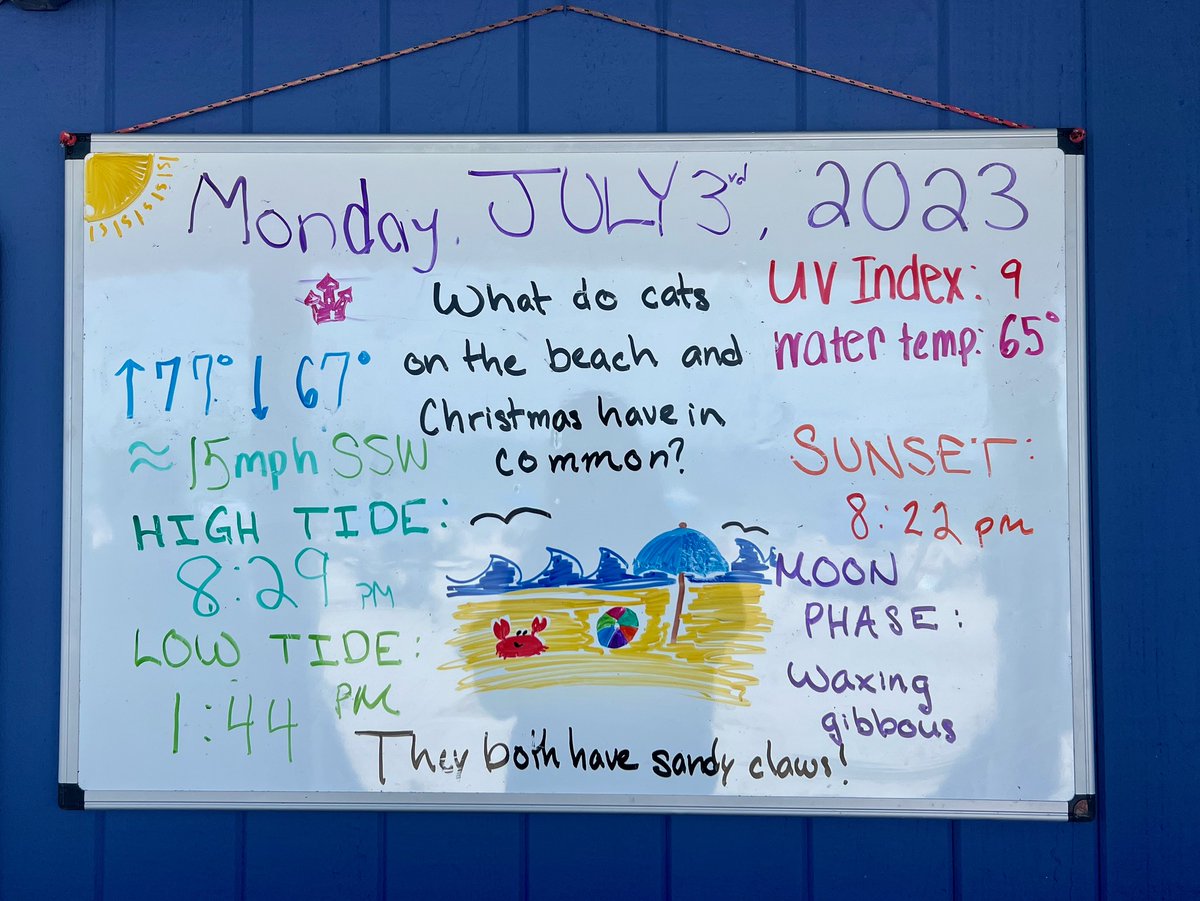 Monday, JULY 3rd, 2023
What do cats
on the beach and
Christmas have in
common?
UV Index: 9
water temp: 65°
↑77° ↓ 67°
≈15mph SSW
HIGH TIDE:
8:29 PM
LOW TIDE:
1:44 PM
SUNSET:
8:22 pm
MOON
PHASE:
Waxing
gibbous
They both have sandy claws!